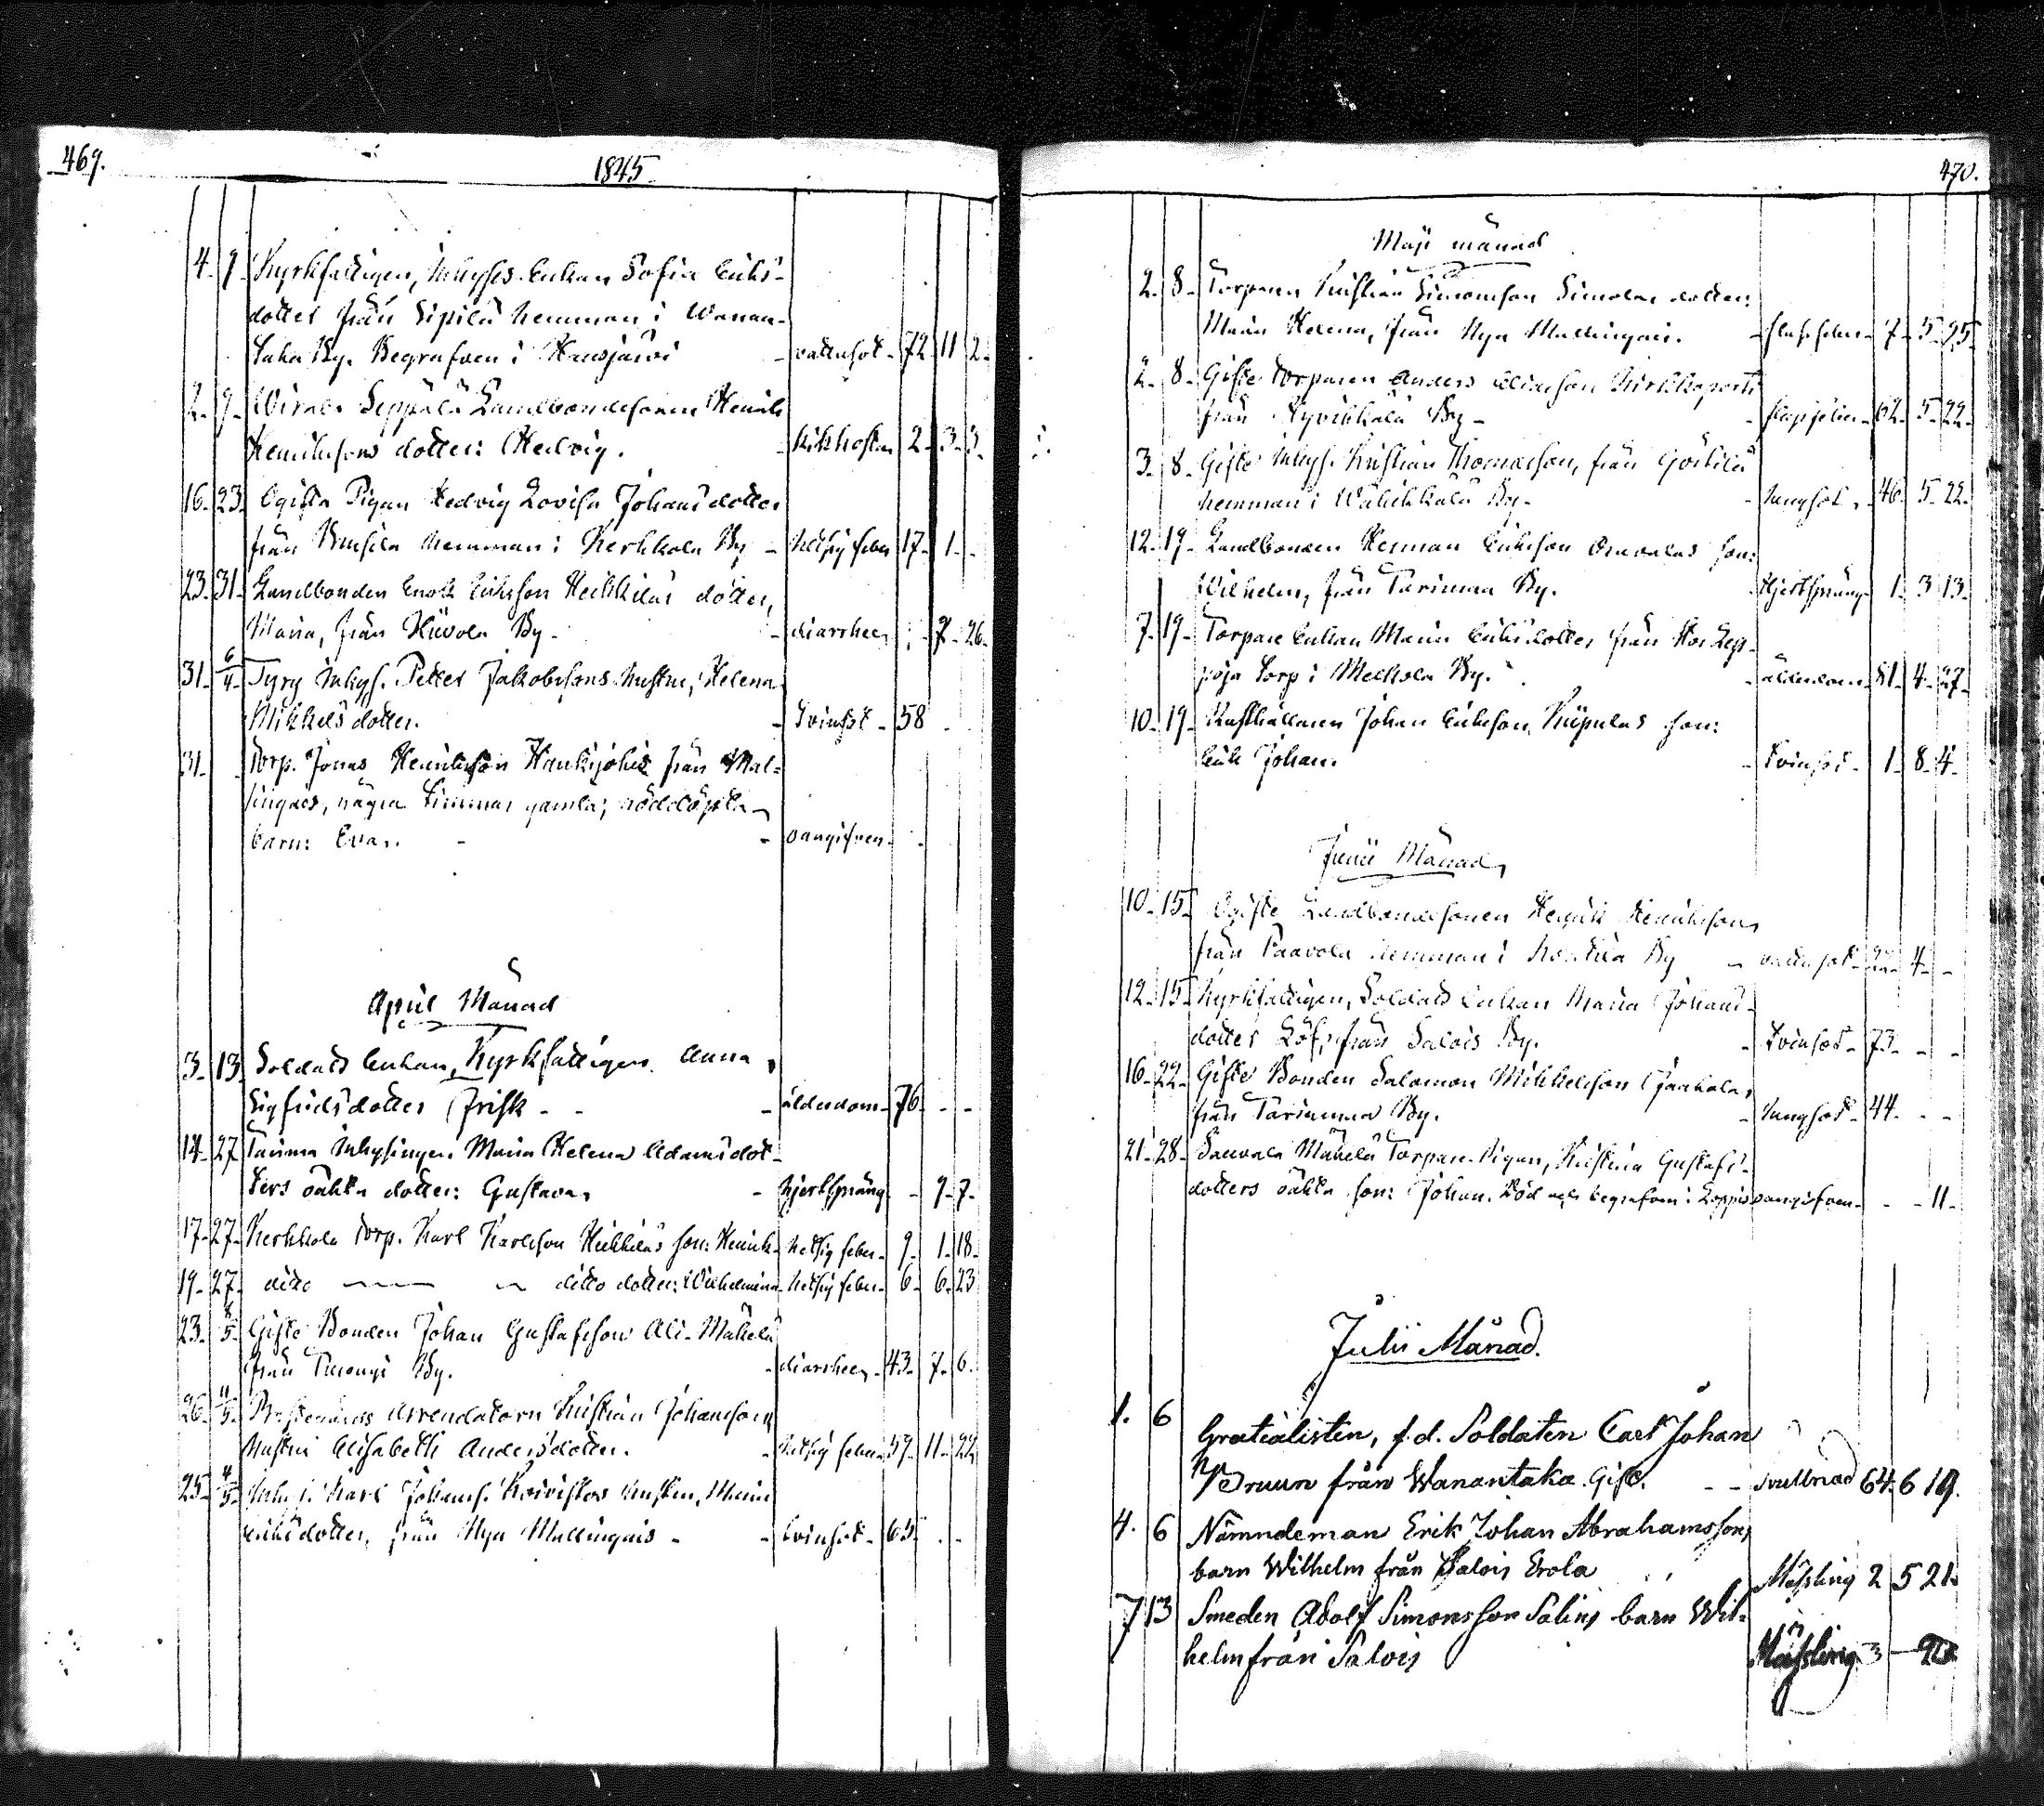 469.
1845
4. 9. Kyrkfattigen, Inhyses Enkan Sofia Eriks-
dotter från Sipilä hemman i Wanan-
taka By. Begrafven i Hausjärvi - vattusot - 72 11 2
2. 9. Wirala Seppälä Landbondesonen Henrik
Henriksons dotter: Hedvig. - kikhosta 2 3 3
16. 23. Ogifta Pigan Hedvig Lovisa Johansdotter
från hemman i Kerkkola By - hetsig feber 17 1 -
23. 31. Landbonden Enok Erikson Heikkiläs dotter,
Maria, från Hiivola By - diarrhee, 7 26
31. 6/4 Tyry Inhys. Petter Jakobsons hustru, Helena
Mikkelsdotter. - tvinsot - 58
31. Torp. Jonas Henrikson Haukijokis från Mal-
lingais, några timmar gamla; nöddöpta
barn: Eva. - oangifven
April Månad
3. 13. Soldats Enkan, Kyrkfattigen Anna
Sigfridsdotter Frisk - - ålderdom - 76 - -
14. 27 Tarima Inhysingen Maria Helena Adamsdot-
ters oäkta dotter: Gustava, - hjertsprång - 9 7
17. 27. Kerkkola torp. Karl Karlsson Heikkiläs son: Henrik - hetsig feber - 9 1 18
19. 27. dito dito dotter: Wilhelmina - hetsig feber - 6 6 23
23. 8/5 Gifte Bonden Johan Gustafsson Ali-Mäkelä
från Turengi By. - diarrhee - 43 7 6
26. 11/5 Arrendatorn Kristian Johansons
hustru Elisabeth Andersdotter. - hetsig feber 59 11 22
25. 4/5 Inhys. Karl Johans. Koivistos hustru, Maria
Eriksdotter, från Nya Mallingais - - tvinsot - 65 - -
470.
Maji månad
2. 8. Torparen Kristian Simonson Simolas dotter:
Maria Helena, från Nya Mallingais. - 7 5 25
2. 8. Gifte torparen Anders Kirkkoportti
från Hyvikkälä By - - 62 5 22
3. 8. Gifte Inhys. Kristian Thomasson, från Görtilä
hemman i Wälikkälä By - - lungsot - 46 5 22
12. 19. Landbonden Herman Erikson son:
Wilhelm, från Tarinma By. - Hjertsprång 1 3 13
7. 19. Torpare Enkan Maria Eriksdotter från
torp i Melkola By. - ålderdom 81 4 27
10. 19. Rusthållaren Johan Erikson Kiipulas son:
Erik Johan. - tvinsot - 1 8 4
Junii Månad,
10. 15. Ogifte Landbondesonen Henrik Henrikson
från Paavola hemman i By - vattusot - 22 4 -
12. 15. Kyrkfattigen, Soldats Enkan Maria Johans-
dotter Löf, från Salois By. - tvinsot - 73 - -
16. 22. Gifte Bonden Salomon Mikkelson Jaakola,
från Tarinma By. - lungsot - 44 - -
21. 28. Sauvala Mäkelä Torpare Pigan, Kristina Gustafs-
dotters oäkta son: Johan. Död och begrafven i Loppis oangifven - - 11
Julii Månad.
1. 6 Gratialisten, f.d. Soldaten Carl Johan
Bruun från Wanantaka. Gift. - - svullnad 64 6 19.
4. 6 Nämndeman Erik Johan Abrahamsson,
barn Wilhelm från Salois Erola Mässling 2 5 21.
7 13 Smeden Adolf Simonsson Salins barn Wil-
helm från Salois Mässling 3 -